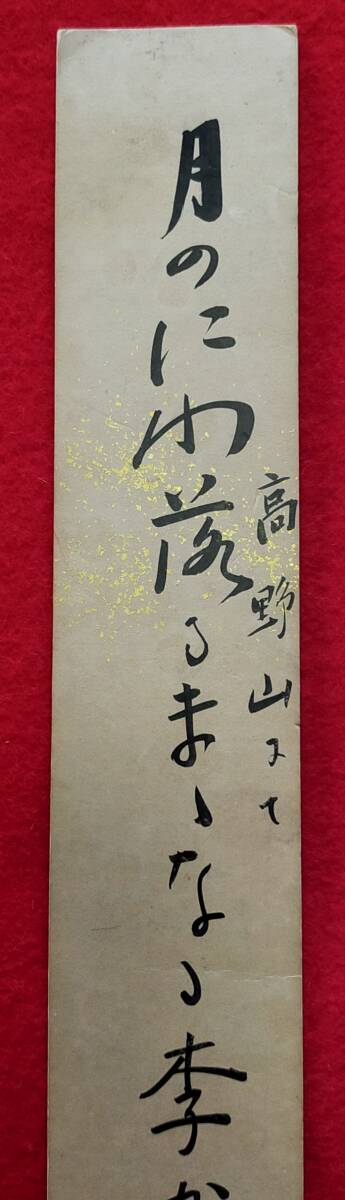 高野山にて
月のにわ落るまゝなる李か